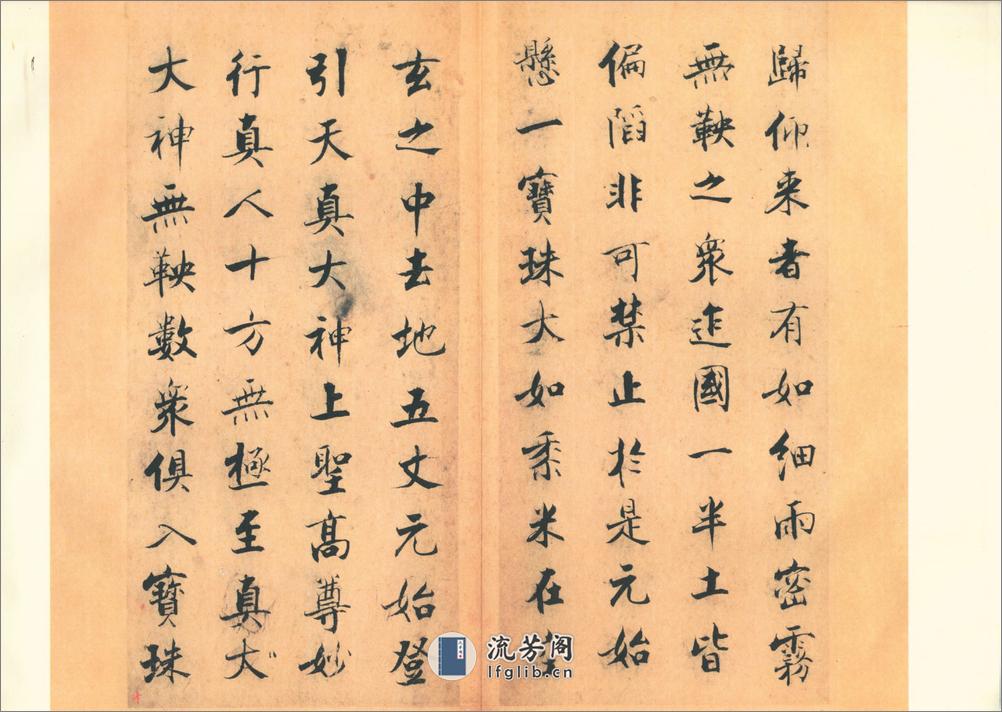 歸仰来者有如细雨密霧
無鞅之衆迮國一半土皆
偏陷非可禁止於是元始
懸一寶珠大如黍米在
玄之中去地五丈元始登
引天真大神上聖高尊妙
行真人十方無極至真大
大神無鞅數衆俱入寶珠
流芳阁
lfglib.cn